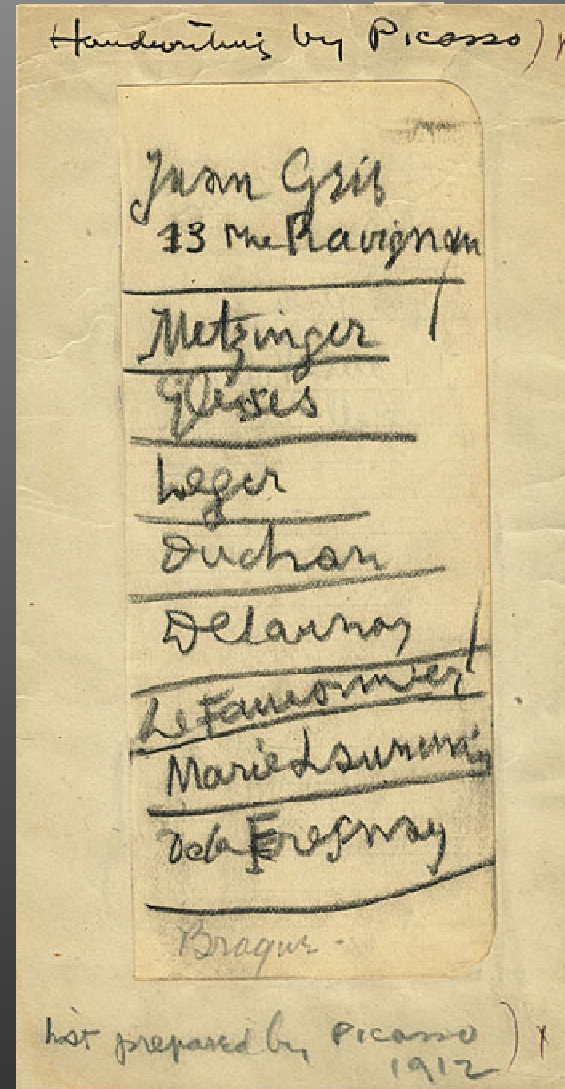 Handwriting by Picasso)
Juan Gris
13 rue Ravignan
Metzinger
Gleises
Leger
Duchan
Delaunay
Le Fauconnier
Marie Laurencin
De la Fresnay
Braque -
List prepared by Picasso) x
1912